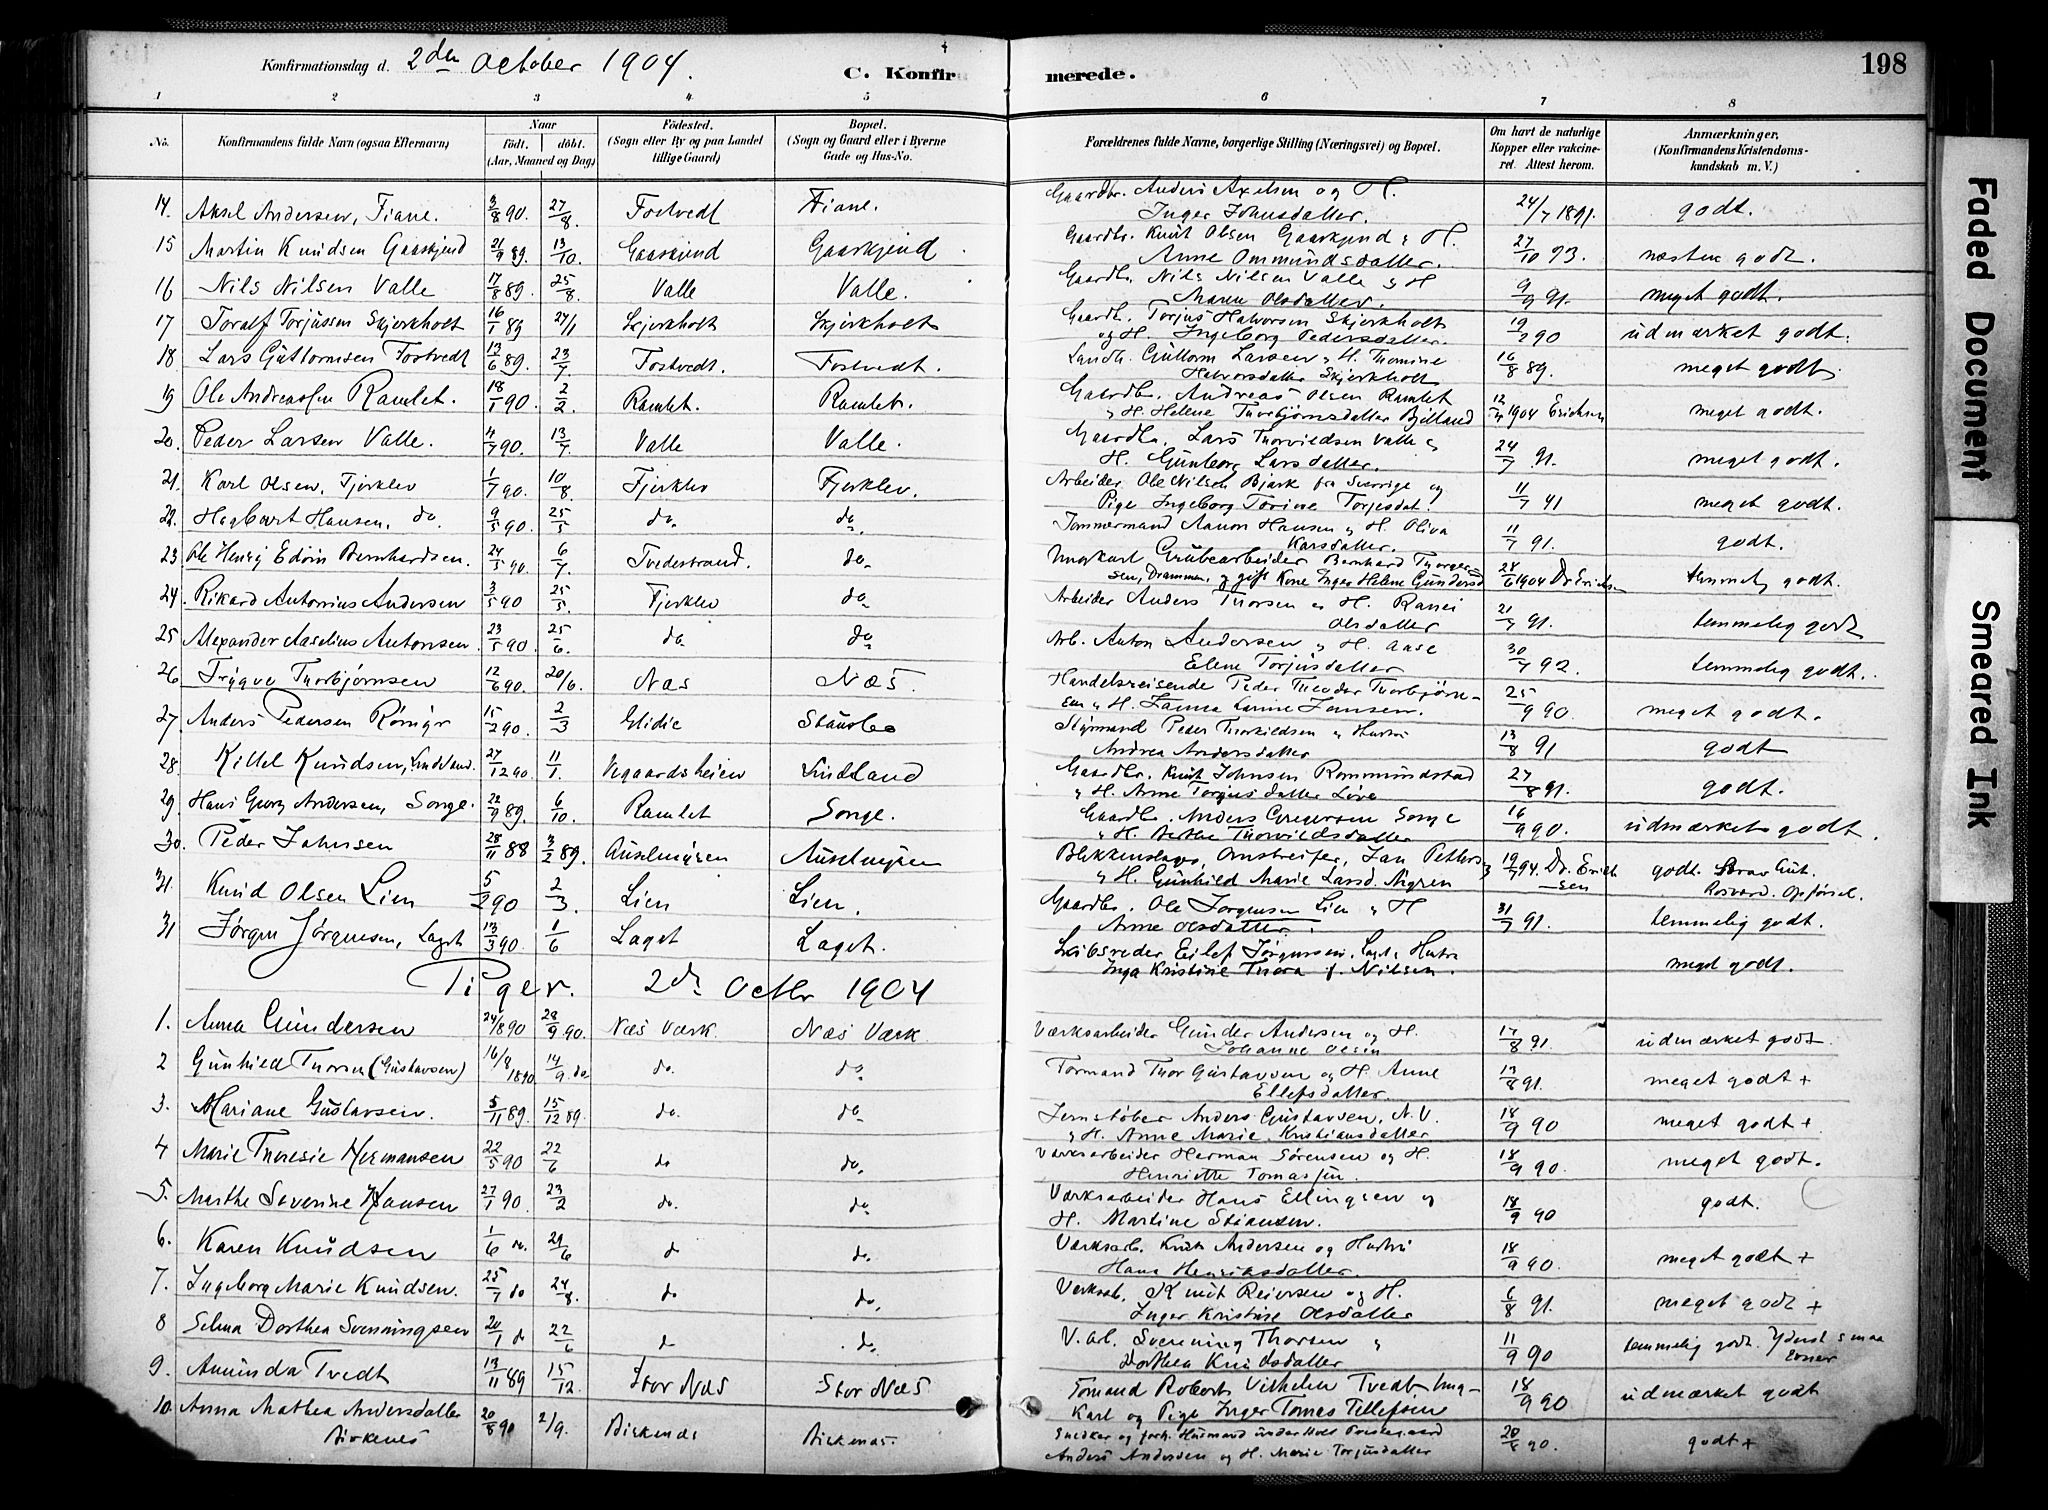 Konfirmationsdag d. 2den October 1904.
C. Konfirmerede.
198
1 2 3 4 5 6 7 8
No. Konfirmandens fulde Navn (ogsaa Efternavn) Naar født. døbt. (Aar, Maaned og Dag) Fødested. (Sogn eller By og paa Landet tillige Gaard) Bopæl. (Sogn og Gaard eller i Byerne Gade og Hus-No. Forældrenes fulde Navne, borgerlige Stilling (Næringsvei) og Bopæl. Om havt de naturlige Kopper eller vakcineret. Attest herom. Anmærkninger. (Konfirmandens Kristendomskundskab m. V.)
14. Aksel Andersen, Fiane. 3/8 90. 27/8. Fostvedt Fiane. Gaardbr. Anders Axelsen og H.
Inger Johnsdatter. 24/7 1891. godt.
15 Martin Knudsen Gaaskjend 21/9 89. 13/10. Gaaskjend Gaaskjend Gaardbr. Knut Olsen Gaaskjend & H.
Anne Ommundsdatter. 27/10 93. næsten godt.
16 Nils Nilsen Valle 17/8 89. 25/8. Valle Valle. Gaardbr. Nils Nilsen Valle & H
Maren Olsdatter. 9/9 91. meget godt.
17 Toralf Torjussen Skjerkholt 16/1 89 24/1 Skjerkholt Skjerkholt Gaardb. Torjus Halvorsen Skjerkholt
og H. Ingeborg Pedersdatter. 90 udmærket godt.
18 Lars Guttormsen Fostvedt 13/6 89. 23/7 Fostvedt. Fostvedt. Guttorm Larsen & H. Thomine
Halvorsdatter Skjerkholt 16/8 89. meget godt.
19 Ole Andreassen Ramlet. 18/1 90. 2/2. Ramlet. Ramlet. Gaardb. Andreas Olsen Ramlet
& H. Helene Thorbjørnsdatter 1904 Erichsen meget godt.
20. Peder Larsen Valle. 4/7 90. 13/7. Valle Valle. Gaardb. Lars Thorvildsen Valle &
H. Gunborg Larsdatter. 24/7 91. meget godt.
21. Karl Olsen, Fjerklev 1/7 90. 10/8. Fjerklev Fjerklev. Arbeider Ole Nilsen Bjerk fra Sverrige og
Pige Ingeborg Torine Torjesdat. 11/7 91 meget godt.
22. Hagbart Hansen, do 9/5 90. 25/5 do. do. Tømmermand Aanon Hansen & H. Oliva
Karsdatter. 11/7 91. godt.
23 Ole Henrij Edvin Bernhardsen. 24/5 90. 6/7. Tvedestrand. do. Ungkarl Grubearbeider Bernhard Thorgersen,
Drammen, og gift Kone Inger Helene Gundersd 28/6 1904 Dr Erichsen temmelig godt.
24. Rikard Antonius Andersen 3/5 90 25/5. Fjerklev do. Arbeider Anders Thorsen og H.
Olsdatter 21/7 91. temmelig godt
25 Alexander Aaselius Antonsen. 23/5 90. 25/6. do. do. Arb. Anton Andersen & H. Aase
Elene Torjusdatter 30/7 92. temmelig godt.
26 Trygve Thorbjørnsen 12/6 90. 20/6. Næs Næs. Handelsreisende Peder Theodor Thorbjørnsen
& H. Jansen. 25/9 90. meget godt.
27. Anders Pedersen 15/2 90. 2/3 Glidie Styrmand Peder Thorkildsen & Hustru
Andrea Andersdatter 13/8 91 godt
28. Kittel Knudsen, Lindland. 27/12 90. 11/1. Vegaardsheien Lindland Gaardbr. Knut Johnsen Rommundstad
& H. Anne Torjusdatter Løve 27/8 91. godt.
29. Hans Georg Andersen, Songe. 22/9 89. 6/10. Ramlet Songe. Gaardb. Anders Gregersen Songe
& H. Thorvildsdatter 16/9 90. udmærket godt.
30. Peder Johnsen 28/11 88 3/2 89. Auselmyren Auselmyren Blikkenslager, Omstreifer, Jan Petters
& H. Gunhild Marie Larsd. Myren 19/7 94. Dr. Erichsen godt. Brav Gut. Opførsel.
31. Knud Olsen Lien 5/2 90 2/3. Lien Lien. Gaardbr. Ole Jørgensen Lien & H
Anne Olsdatter. 31/7 91. temmelig godt.
31 Jørgen Jørgensen, Laget 13/3 90. 1/6 Laget Laget. Skibsreder Eilef Jørgensen, Laget, Hustru
Inga Kristine Thora f. Nilsen. meget godt.
Piger. 2den Octbr 1904
1. Anna Gundersen 24/8 90 28/9 90. Næs Værk. Næs Værk. Værksarbeider Gunder Andersen og H.
Johanne Olsen 17/8 91. udmærket godt.
2 Gunhild Thorsen (Gustavsen) 16/8 1890 14/9. do do. do. Formand Thor Gustavsen og H. Anne
Ellefsdatter. 13/8 91. meget godt +
3. Mariane Gustavsen. 5/11 89. 15/12 89. do. do. Jernstøber Anders Gustavsen, N. V.
& H. Anne Marie Kristiansdatter 18/9 90 meget godt +
4 Marie Theresie Hermansen 22/5 90 22/6 do do. Værksarbeider Herman Sørensen og H.
Henriette Tomassen. 18/9 90. meget godt.
5. Marthe Severine Hansen 27/1 90. 23/2 do. do. Værksarbeider Hans Ellingsen og
H. Martine Stiansen. 18/9 90 godt.
6. Karen Knudsen 1/6 do. 29/6 do do. Værksarb. Knut Andersen og Hustru
Hana Henriksdatter. 18/9 90. meget godt +
7. Ingeborg Marie Knudsen. 25/7 do 24/8. do do. Værksarb. Knut Reiersen og H.
Inger Kristine Olsdatter 6/8 91. meget godt +
8 Selma Dorthea Svenningsen 20/1 do 22/6 do do. V. arb. Svenning Thorsen &
Dorthea Knudsdatter 11/9 90 temmelig godt. Yderst smaa Evner
9. Amunda Tvedt 13/11 89 15/12. Stor Næs Stor Næs Formand Robert Vilhelm Tvedt Ungkarl
og Pige Inger Tomas Tellefsen 18/9 90 udmærket godt
10. Anna Mathea Andersdatter
Birkenes 20/8 90 2/9. Birkenæs Birkenæs. Snedker og forh. Husmand under Holt Prestegaard
Anders Andersen og H. Marie Torjusdatter 20/8 90. godt +
Faded Document
Smeared Ink